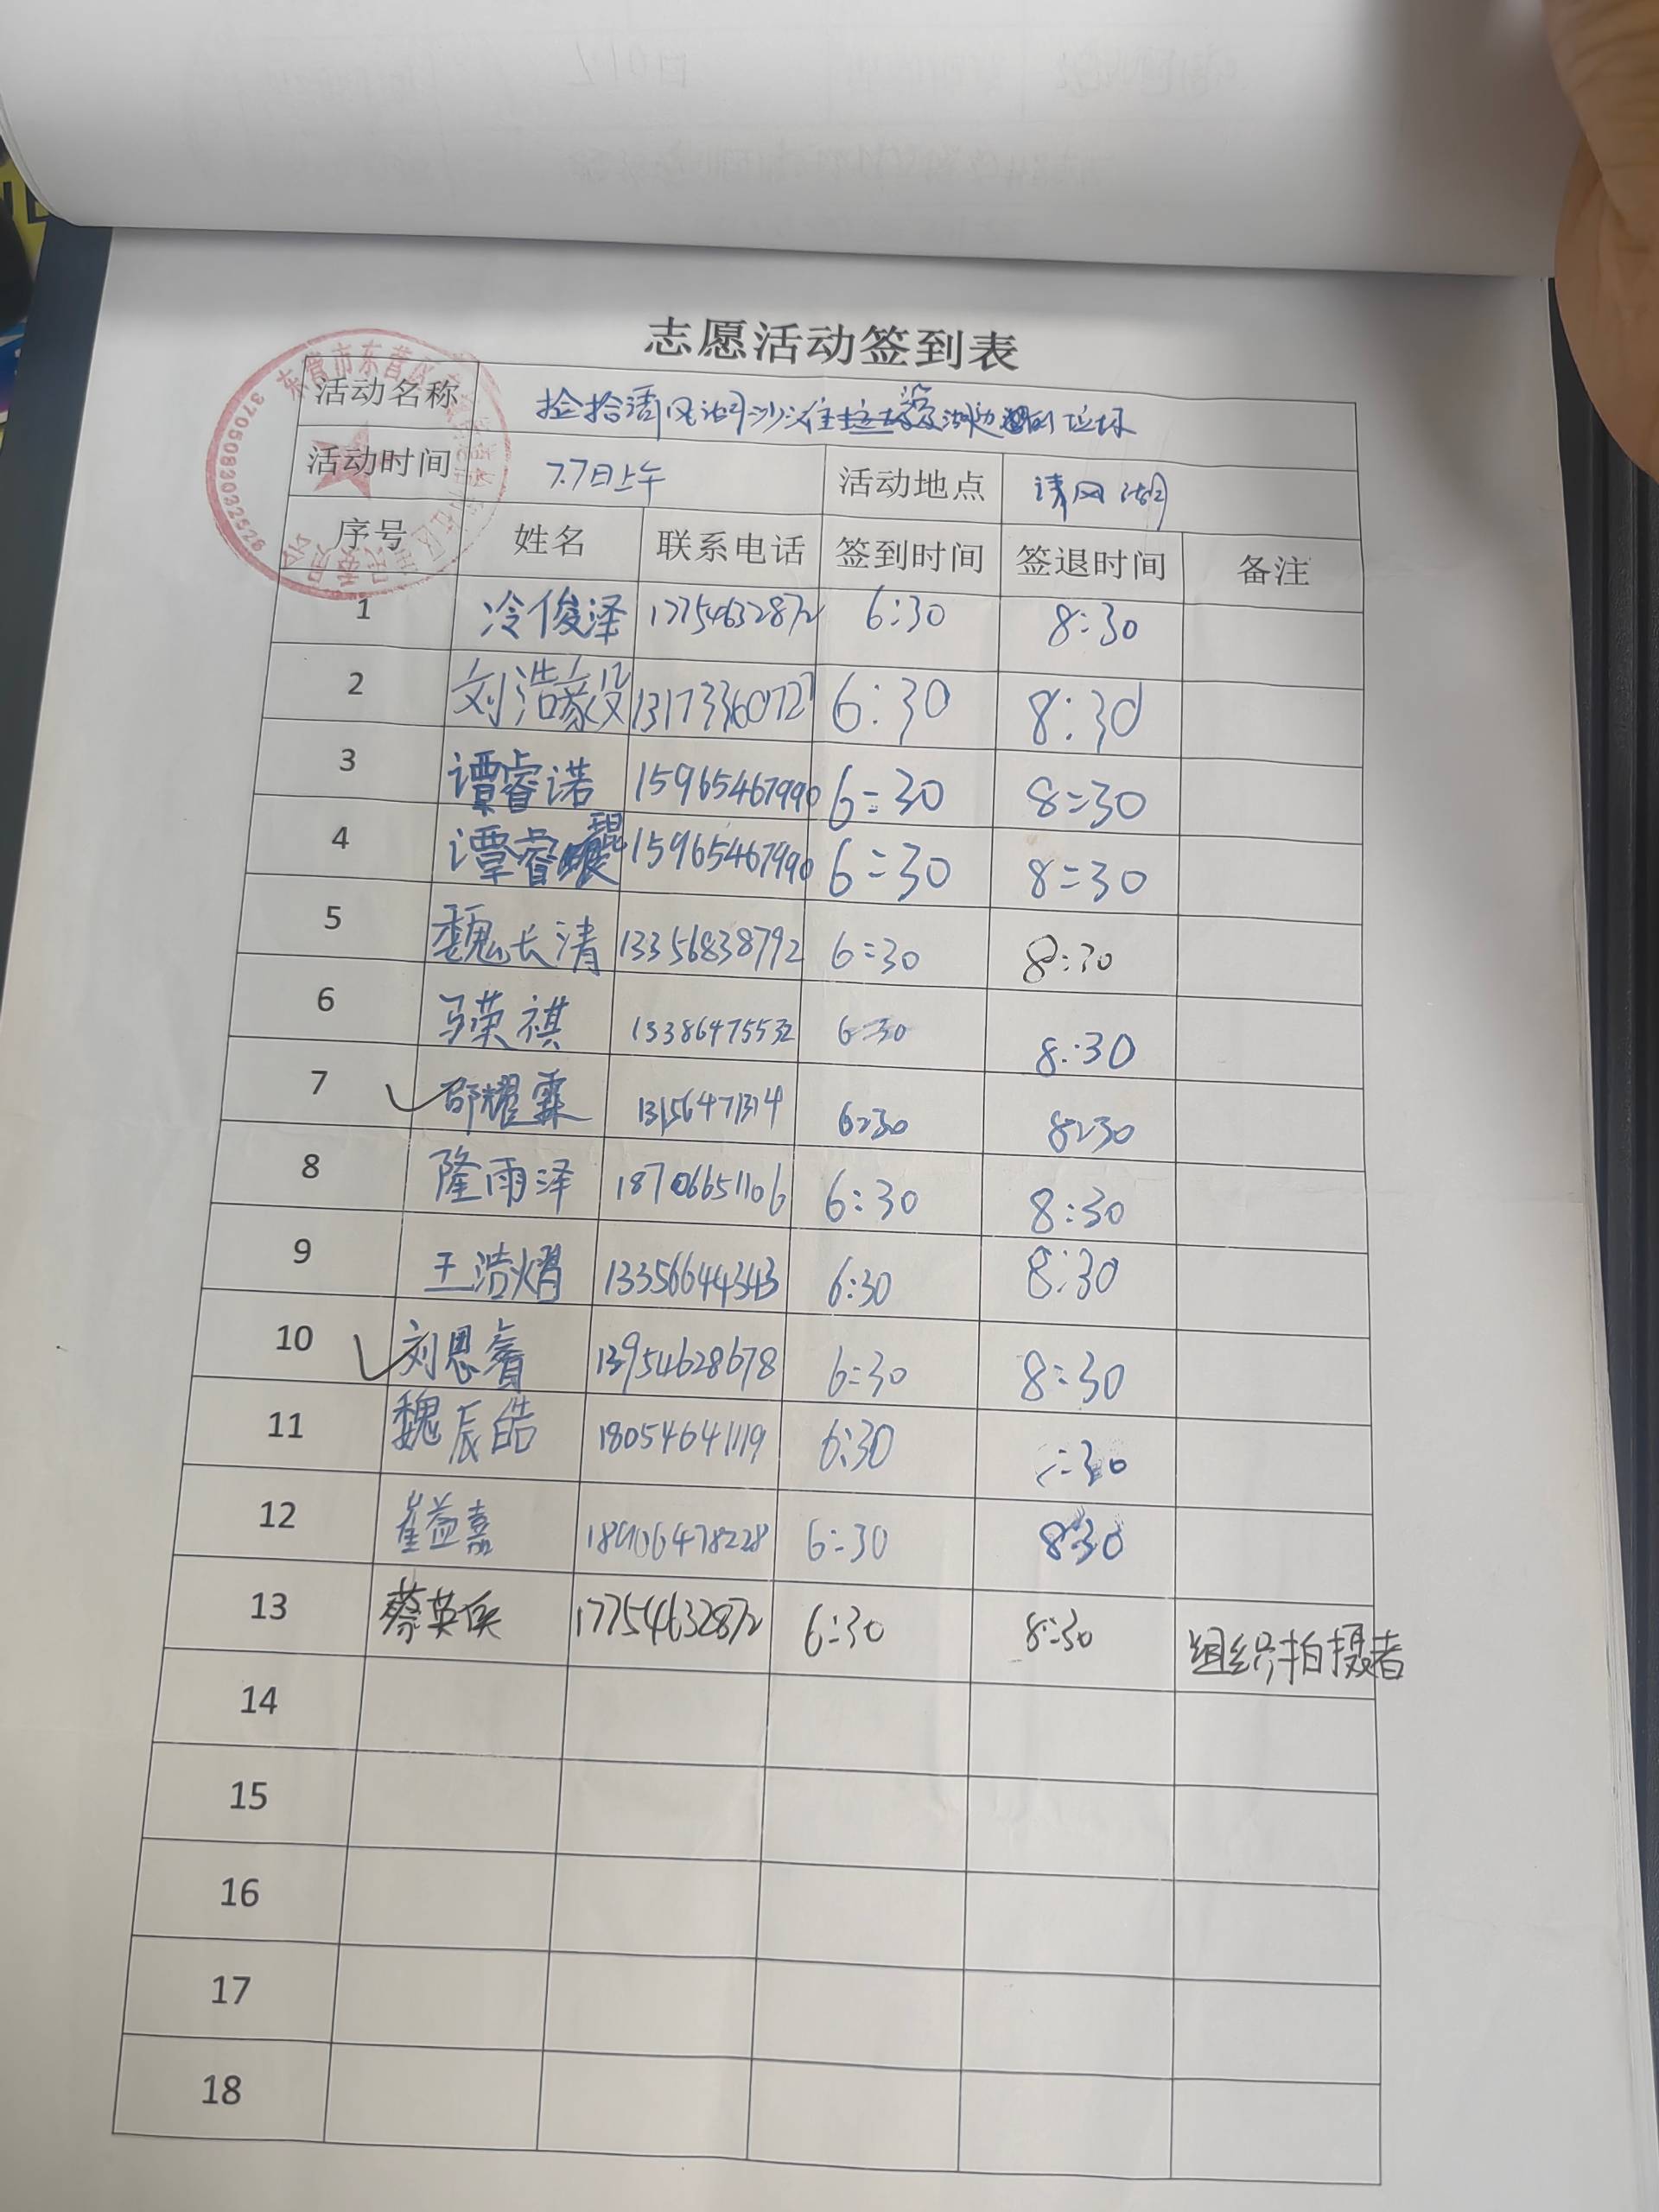 志愿活动签到表
活动名称 捡拾清风湖沙滩垃圾及湖边的垃圾
活动时间 7.7日上午 活动地点 清风湖
序号 姓名 联系电话 签到时间 签退时间 备注
1 冷俊泽 17754632872 6:30 8:30
2 刘浩毅 13173360727 6:30 8:30
3 谭睿诺 15965467990 6:30 8:30
4 谭睿琨 15965467990 6:30 8:30
5 魏长清 13356838792 6:30 8:30
6 马荣祺 13386475532 6:30 8:30
7 邵耀霖 13156471314 6:30 8:30
8 隆雨泽 18706651106 6:30 8:30
9 王浩熠 13356644343 6:30 8:30
10 刘恩睿 13954628678 6:30 8:30
11 魏辰皓 18054641119 6:30 :30
12 崔益嘉 18906478228 6:30 8:30
13 蔡英 17754632872 6:30 8:30 组织拍摄者
14
15
16
17
18
东营市东营区
3705083032526